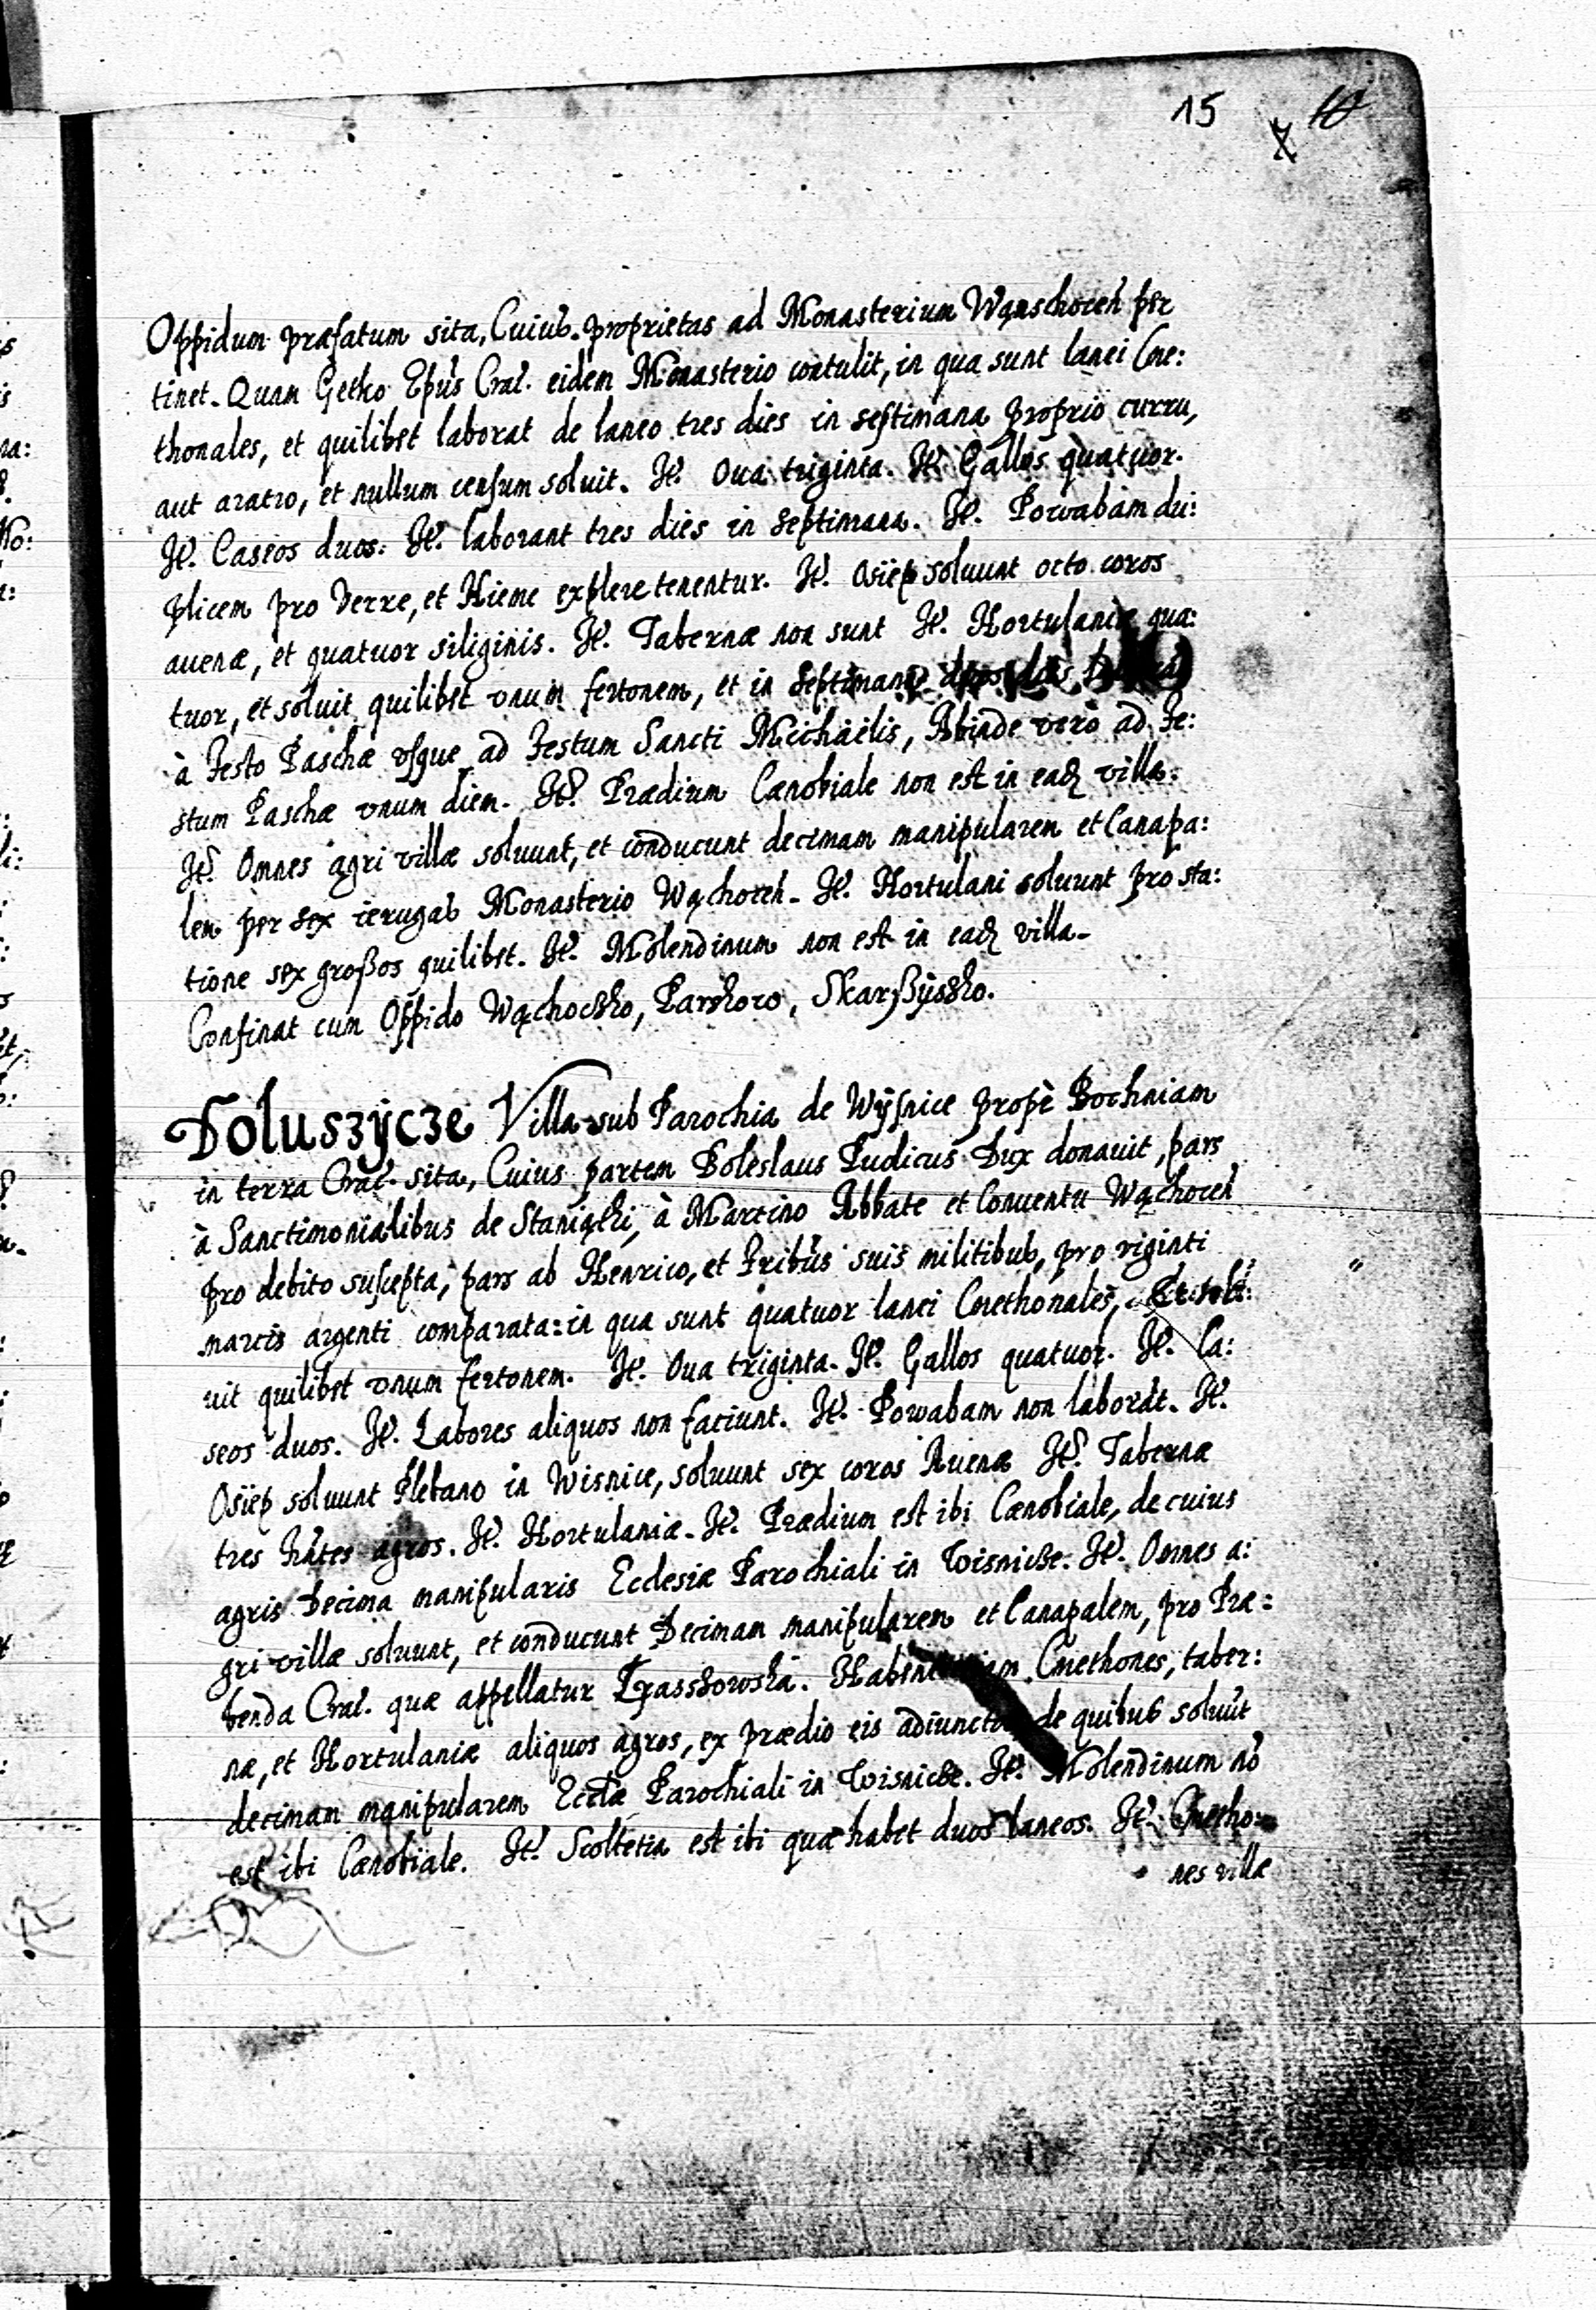 15 10
Oppidum præfatum sita, Cuius proprietas ad Monasterium Wąnschocen per
tinet. Quam Getko Epūs Crac. eidem Monasterio contulit, in qua sunt lanei Cme:
thonales, et quilibet laborat de laneo tres dies in septimana proprio curru,
aut aratro, et nullum censum soluit. It. Oua triginta. It. Gallos quatuor.
It. Caseos duos. It. laborant tres dies in septimana. It. Powabam du:
plicem pro Verre, et Hieme explere tenentur. It. Osiep soluunt octo coros
auenæ, et quatuor siliginis. It. Tabernæ non sunt It. Hortulaniæ qua:
tuor, et soluit quilibet vnum fertonem, et in Septimana duos dies
à Festo Paschæ vsque ad Festum Sancti Michaëlis, Abinde verò ad Fe:
stum Paschæ vnum diem. It. Prædium Cænobiale non est in eadē villa.
It. Omnes agri villæ soluunt, et conducunt decimam manipularem et Canapa:
lem per sex ierugas Monasterio Wąchocen. It. Hortulani soluunt pro sta:
tione sex großos quilibet. It. Molendinum non est in eadē villa.
Confinat cum Oppido Wąchoczko, Parszowo, Skarßÿszko.
Doluszÿcze Villa sub Parochia de Wÿsnice propè Bochniam
in terra Crac. sita, Cuius partem Boleslaus Pudicus Dux donauit, pars
à Sanctimonialibus de Staniątki, à Martino Abbate et Conuentu Wąchocen
pro debito suscepta, pars ab Henrico, et Fribūs suis militibus, pro viginti
marcis argenti comparata: in qua sunt quatuor lanei Cmethonales, Et sol:
uit quilibet vnum fertonem. It. Oua triginta. It. Gallos quatuor. It. Ca:
seos duos. It. Labores aliquos non faciunt. It. Powabam non laborāt. It.
Osiep soluunt Plebano in Wisnice, soluunt sex coros Auenæ It. Tabernæ
tres hñtes agros. It. Hortulaniæ. It. Prædium est ibi Cænobiale, de cuius
agris Decima manipularis Ecclesiæ Parochiali in Wisnicze. It. Omnes a:
gri villæ soluunt, et conducunt Decimam manipularem et Canapalem, pro Præ:
benda Crac. quæ appellatur Cmethones, taber:
næ, et Hortulaniæ aliquos agros, ex prædio eis adiunctos de quibus soluūt
decimam manipularem Ecclæ Parochiali in Wisnicze. It. Molendinum nō
est ibi Cænobiale. It. Scoltetia est ibi quæ habet duos laneos. It. Cmetho:
nes villæ